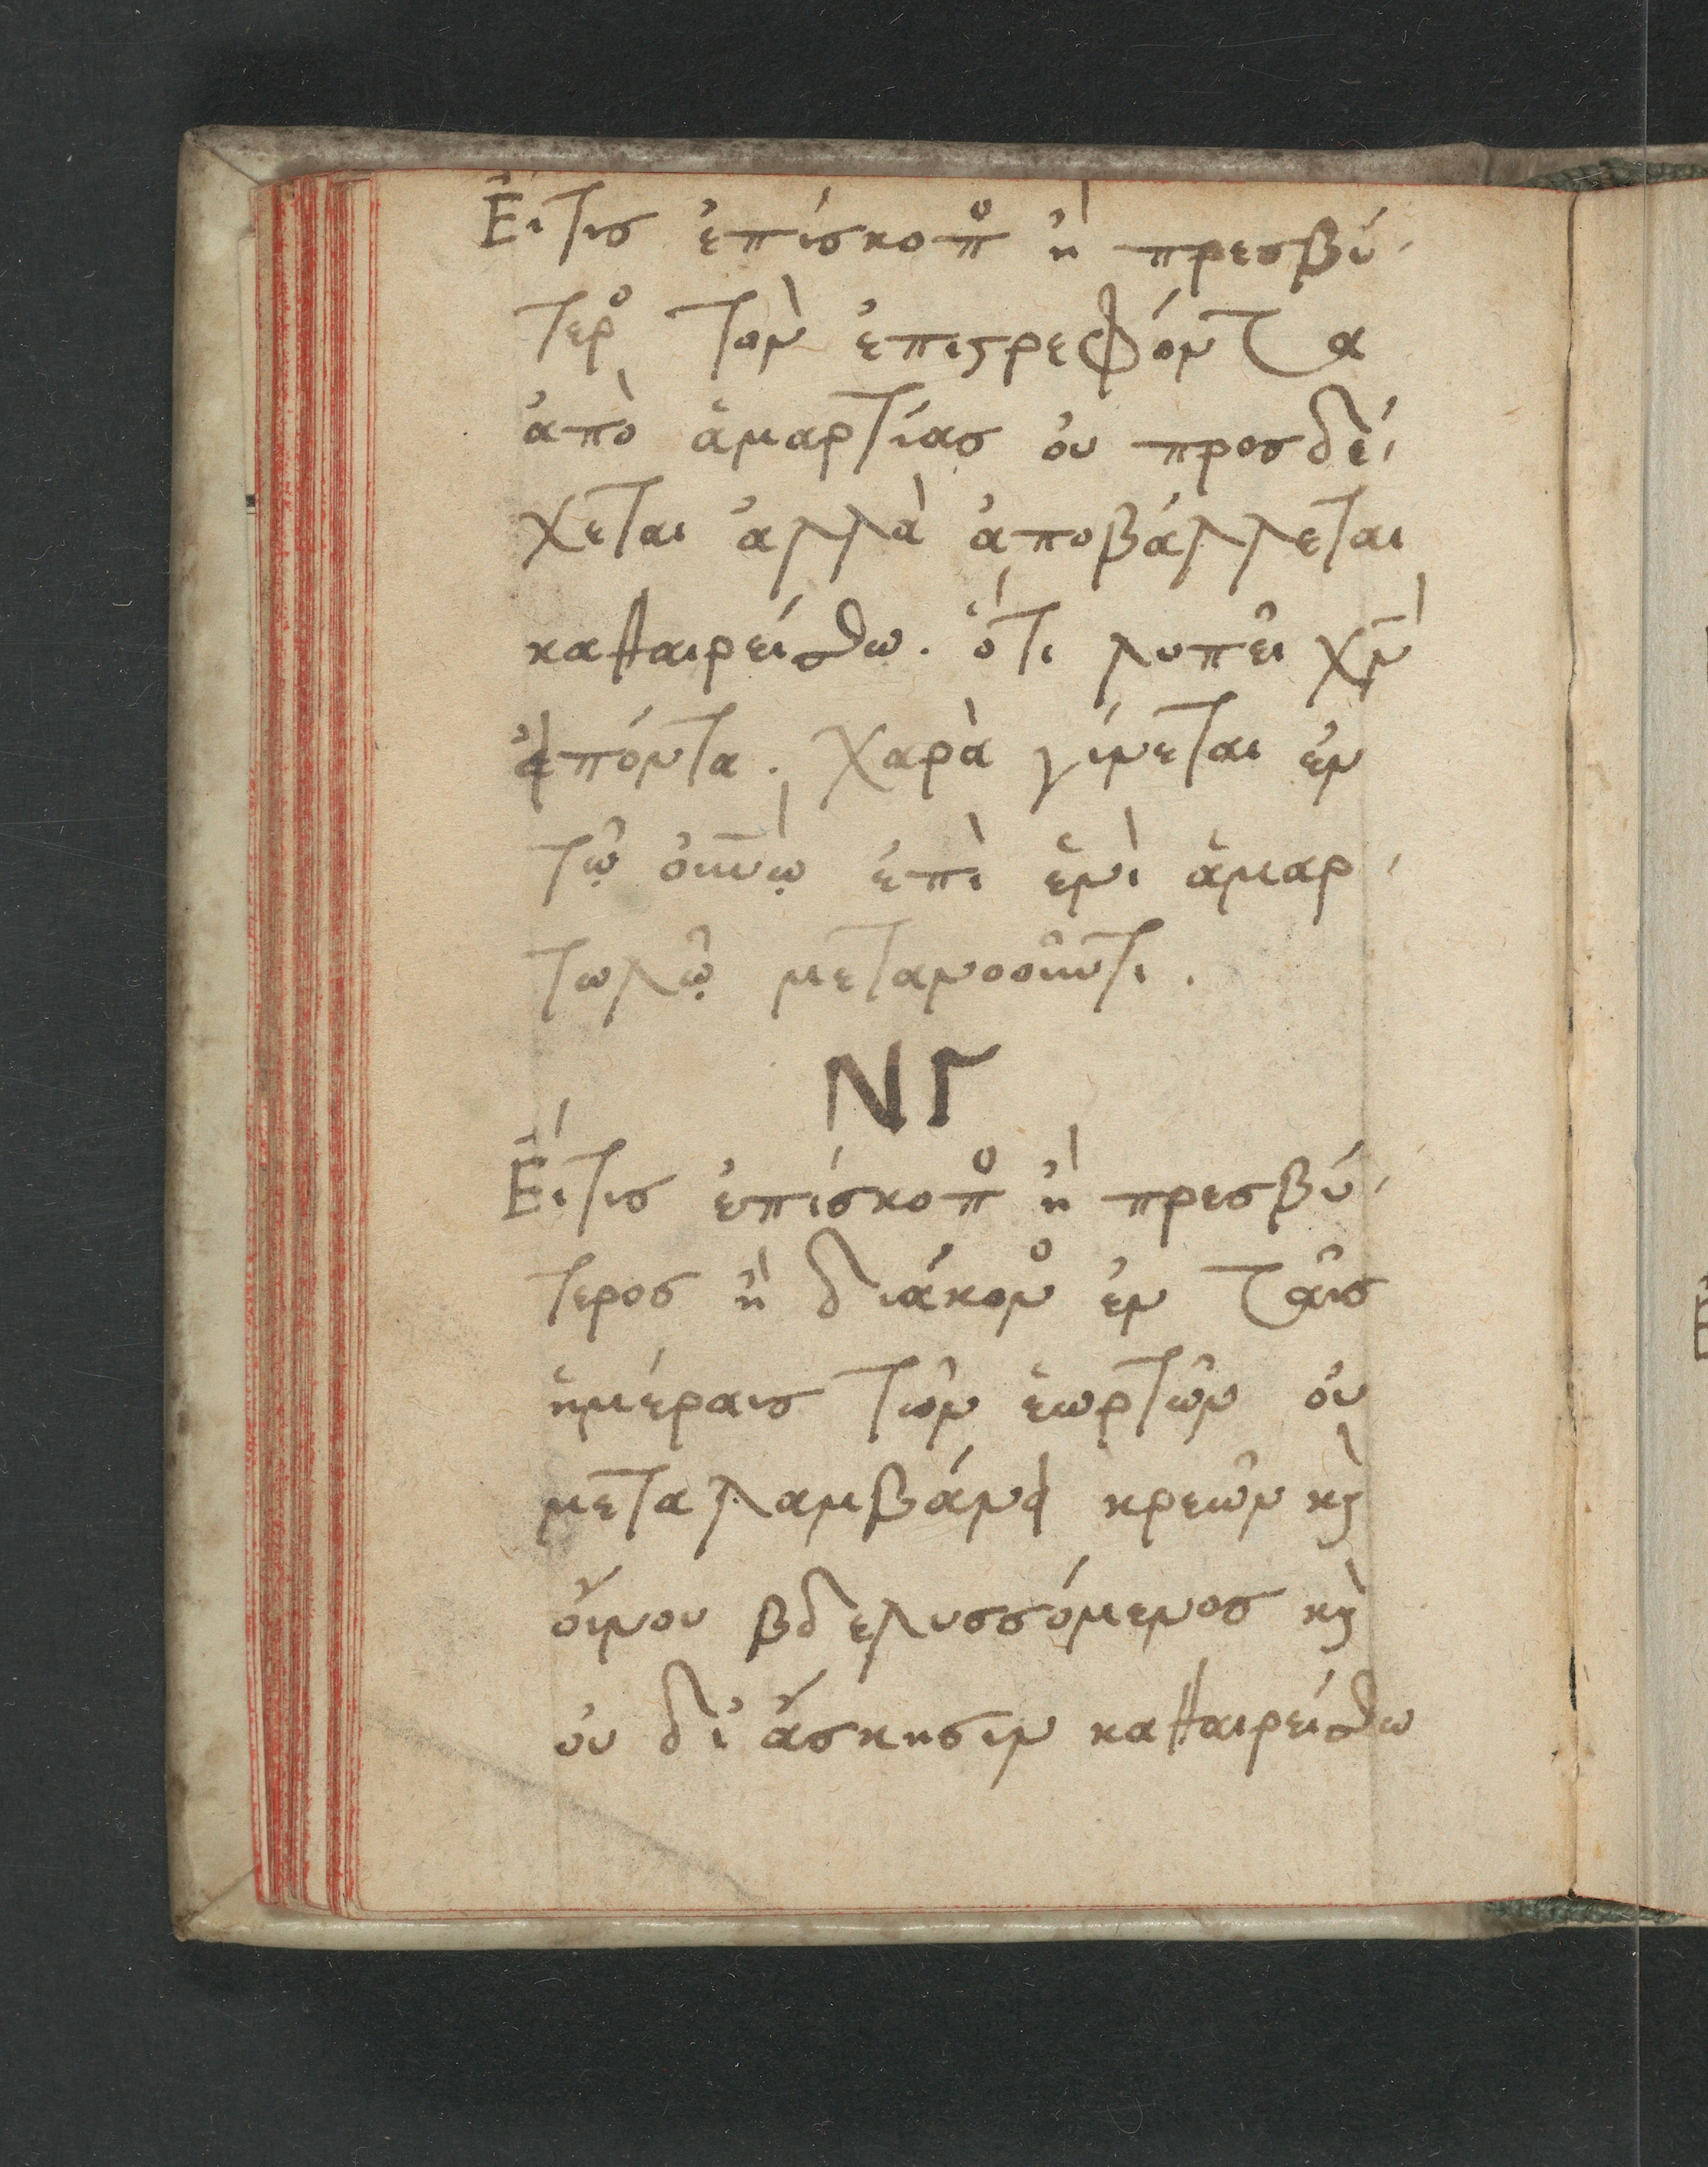 Εἴτις ἐπίσκοπ̊ ἢ πρεσβύ-
τερ̊ τὸν ἐπιϛρεφόντα
ἀπὸ ἁμαρτίας ὀυ προσδέ-
χεται ἀλλὰ ἀποβάλλεται
καθαιρείσθω. ὅτι λυπεῖ χν̅
ἐιπόντα. Χαρὰ γίνεται ἐν
τῷ ὀυν̅ῳ ἐπὶ ἑνὶ ἁμαρ-
τωλῷ μετανοοῦντι.
ΝΓ
Εἴτις ἐπίσκοπ̊ ἢ πρεσβύ-
τερος ἢ διάκον̊ ἐν ταῖς
ἡμέραις τῶν ἑωρτῶν ὀυ
μεταλαμβάνει κρεῶν κὶ
ὄινου βδελυσσόμενος κὶ
ὀυ δι᾽ ἄσκησιν καθαιρείσθω